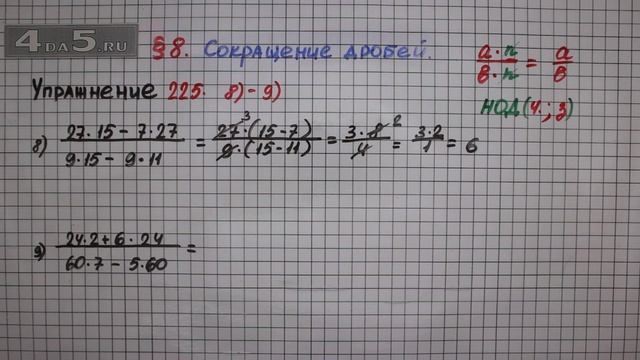 4DA5.RU
§8. Сокращение дробей.
a·n / b·n = a / b
Упражнение 225. 8)-9)
НОД(ч.; з)
8) 27·15 - 7·27 / 9·15 - 9·11 = 27³·(15-7) / 9·(15-11) = 3·8² / 4 = 3·2 / 1 = 6
9) 24·2+6·24 / 60·7 - 5·60 =